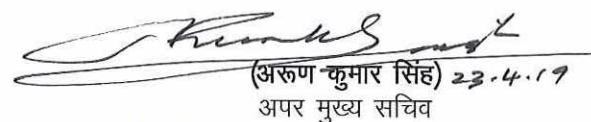 (अरूण कुमार सिंह) 23.4.19
अपर मुख्य सचिव